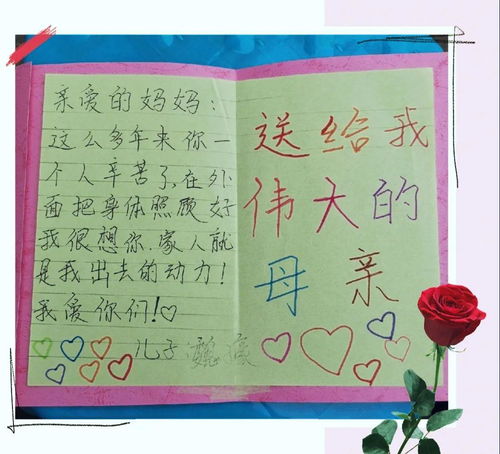 亲爱的妈妈:
这么多年来你一
个人辛苦了,在外
面把身体照顾好
我很想你.家人就
是我出去的动力!
我爱你们!♡
儿子
送给我
伟大的
母亲